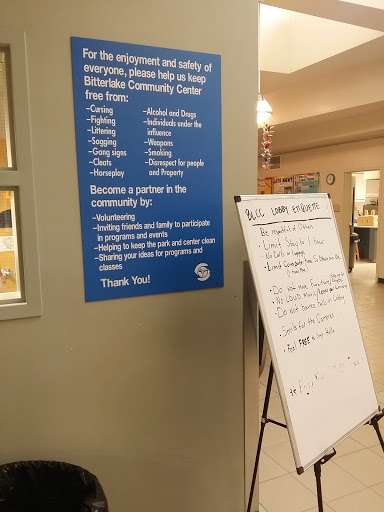 For the enjoyment and safety of
everyone, please help us keep
Bitterlake Community Center
free from:
-Cursing
-Fighting
-Littering
-Sagging
-Gang signs
-Cleats
-Horseplay
-Alcohol and Drugs
-Individuals under the
influence
-Weapons
-Smoking
-Disrespect for people
and Property
Become a partner in the
community by:
-Volunteering
-Inviting friends and family to participate
in programs and events
-Helping to keep the park and center clean
-Sharing your ideas for programs and
classes
Thank You!
BLCC LOBBY ETIQUETTE
Be respectful of Others
· Limit Stay to 1 hour
· Limit Computer time So Others can Use
· Do not Move Furniture
· No LOUD Music
· Do not bounce balls in Lobby
· Smile for the Cameras
· Feel FREE to Say Hello